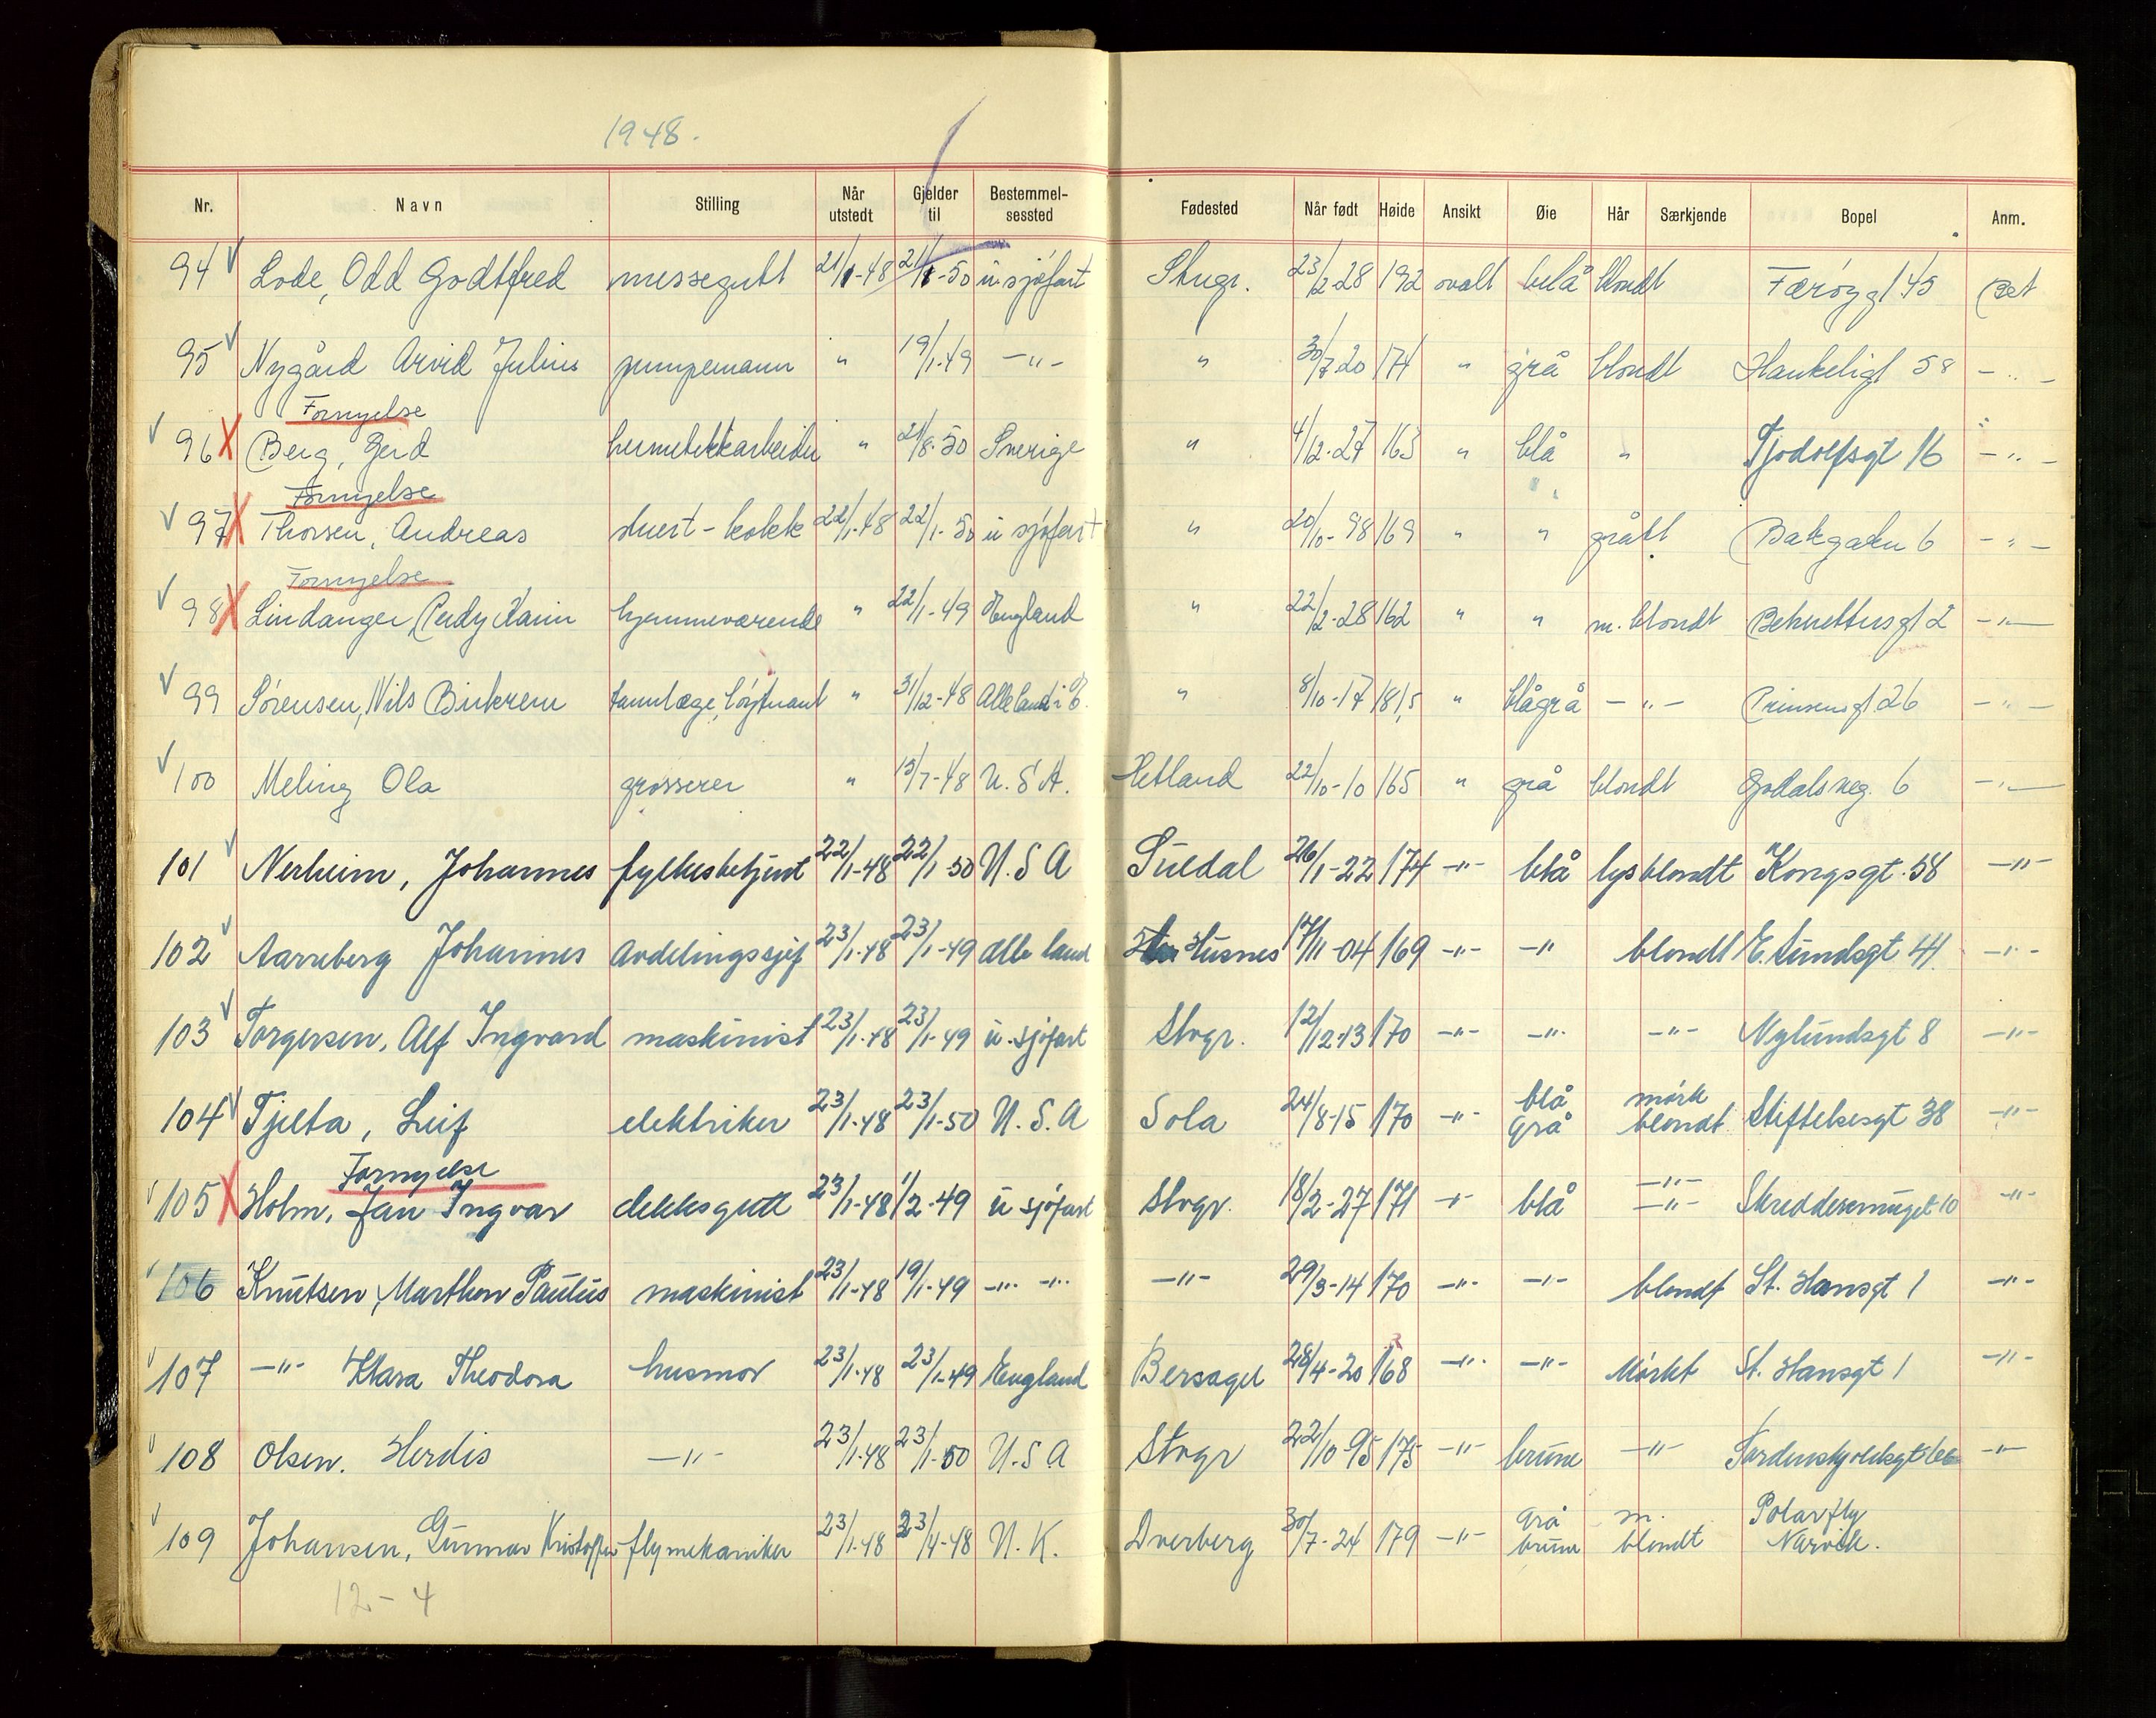 1948.
Nr. Navn Stilling Når utstedt Gjelder til Bestemmel-sessted Fødested Når født Høide Ansikt Øie Hår Særkjende Bopel Anm.
94 Lode, Odd Godtfred messegutt 21/1-48 21/1-50 u. sjøfart Stvgr. 23/2-28 192 ovalt belå blondt Færøygt 45 Bet
95 Nygård Arvid Julius pumpemann " 19/1-49 -"- " 30/7-20 174 " grå blondt Haukeligt 58 -"-
Fornyelse
96 X Berg, Gerd hermetikkarbeider " 21/8-50 Sverige " 4/12-27 163 " blå " Tjodolfsgt 16 -"-
Fornyelse
97 X Thorsen, Andreas stuert-kokk 22/1-48 22/1-50 u sjøfart " 20/10-98 169 " " grått Bakgaten 6 -"-
Fornyelse
98 X Lindanger, Rudy Karin hjemmeværende " 22/1-49 England " 22/2-28 162 " " m. blondt 2 -"-
99 Sørensen, Nils Birkrem tannlæge, løytnant " 31/12-48 Alle land i E. " 8/10-17 181,5 " blågrå -"- Prinsensgt 26 -"-
100 Meling Ola grosserer " 15/7-48 U.S.A. Hetland 22/10-10 165 " grå blondt Godalsveg. 6 -"-
101 Nerheim, Johannes fylkesbetjent 22/1-48 22/1-50 U.S.A Suldal 26/1-22 174 -"- blå lys blondt Kongsgt. 58 -"-
102 Aarreberg Johannes Avdelingssjef 23/1-48 23/1-49 alle land Husnes 17/11-04 169 -"- -"- blondt E. Sundsgt 41 -"-
103 Torgersen, Alf Ingvard maskinist 23/1-48 23/1-49 u. sjøfart Stvgr. 12/12-13 170 -"- -"- -"- Nylundsgt 8 -"-
104 Tjelta, Leif elektriker 23/1-48 23/1-50 U.S.A Sola 24/8-15 170 -"- blå grå mørk blondt Stiftelsesgt 38 -"-
Fornyelse
105 X Holm, Jan Ingvar dekksgutt 23/1-48 1/2-49 u sjøfart Stvgr. 18/2-27 171 -"- blå -"- -"- Skreddersmuget 10 -"-
106 Knutsen, Marthon Paulus maskinist 23/1-48 19/1-49 -"- -"- -"- 29/3-14 170 -"- -"- blondt St. Hansgt 1 -"-
107 -"- Klara Theodora husmor 23/1-48 23/1-49 England Bersagel 28/4-20 168 -"- -"- Mørkt St. Hansgt 1 -"-
108 Olsen. Herdis -"- 23/1-48 23/1-50 U.S.A Stvgr 22/10-95 175 -"- brune -"- -"-
109 Johansen, Gunnar Kristoffer flymekaniker 23/1-48 23/4-48 U.K. Dverberg 30/7-24 179 -"- grå brune m. blondt Polarfly Narvik.
12-4